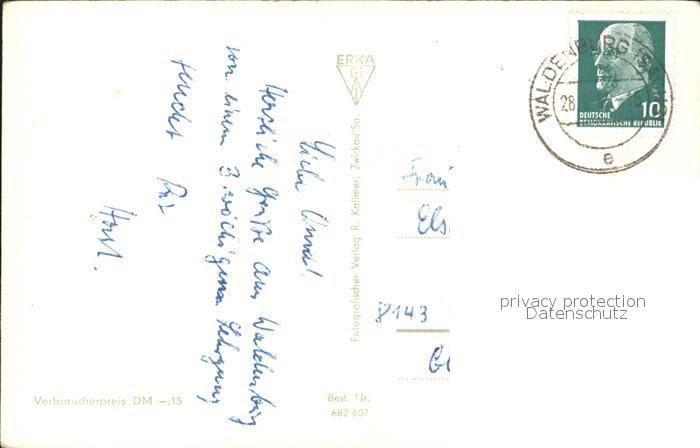 Liebe Omma!
Herzliche Grüße aus Waldenburg
von einem 3 wöchigem Lehrgang
sendet Dir
Horst.
ERKA
Fotografischer Verlag R. Kallmer, Zwickau/Sa.
Verbraucherpreis DM –,15
Best. Nr.
682/607
WALDENBURG (SA
28.
e
10
DEUTSCHE
DEMOKRATISCHE REPUBLIK
Frau
Els
8143
privacy protection
Datenschutz